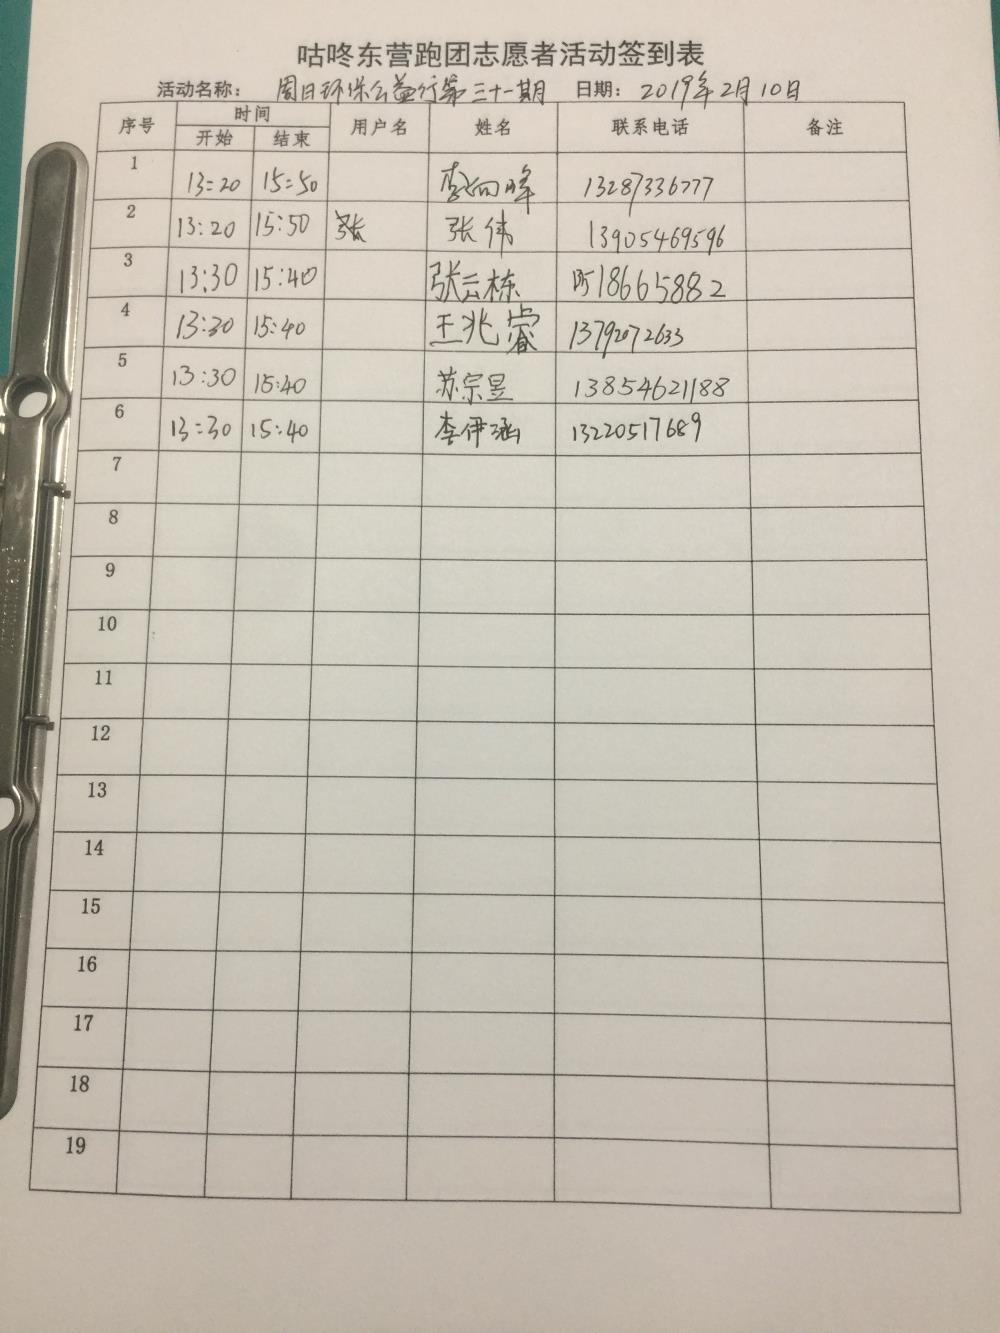 咕咚东营跑团志愿者活动签到表
活动名称： 周日环保公益行第三十一期 日期： 2019年2月10日
序号 时间 用户名 姓名 联系电话 备注
开始 结束
1 13:20 15:50 李向峰 13287336777
2 13:20 15:50 张 张伟 13905469596
3 13:30 15:40 张云栋 18665882
4 13:30 15:40 王兆睿 13792072633
5 13:30 15:40 苏宗昱 13854621188
6 13:30 15:40 李伊涵 13220517689
7
8
9
10
11
12
13
14
15
16
17
18
19